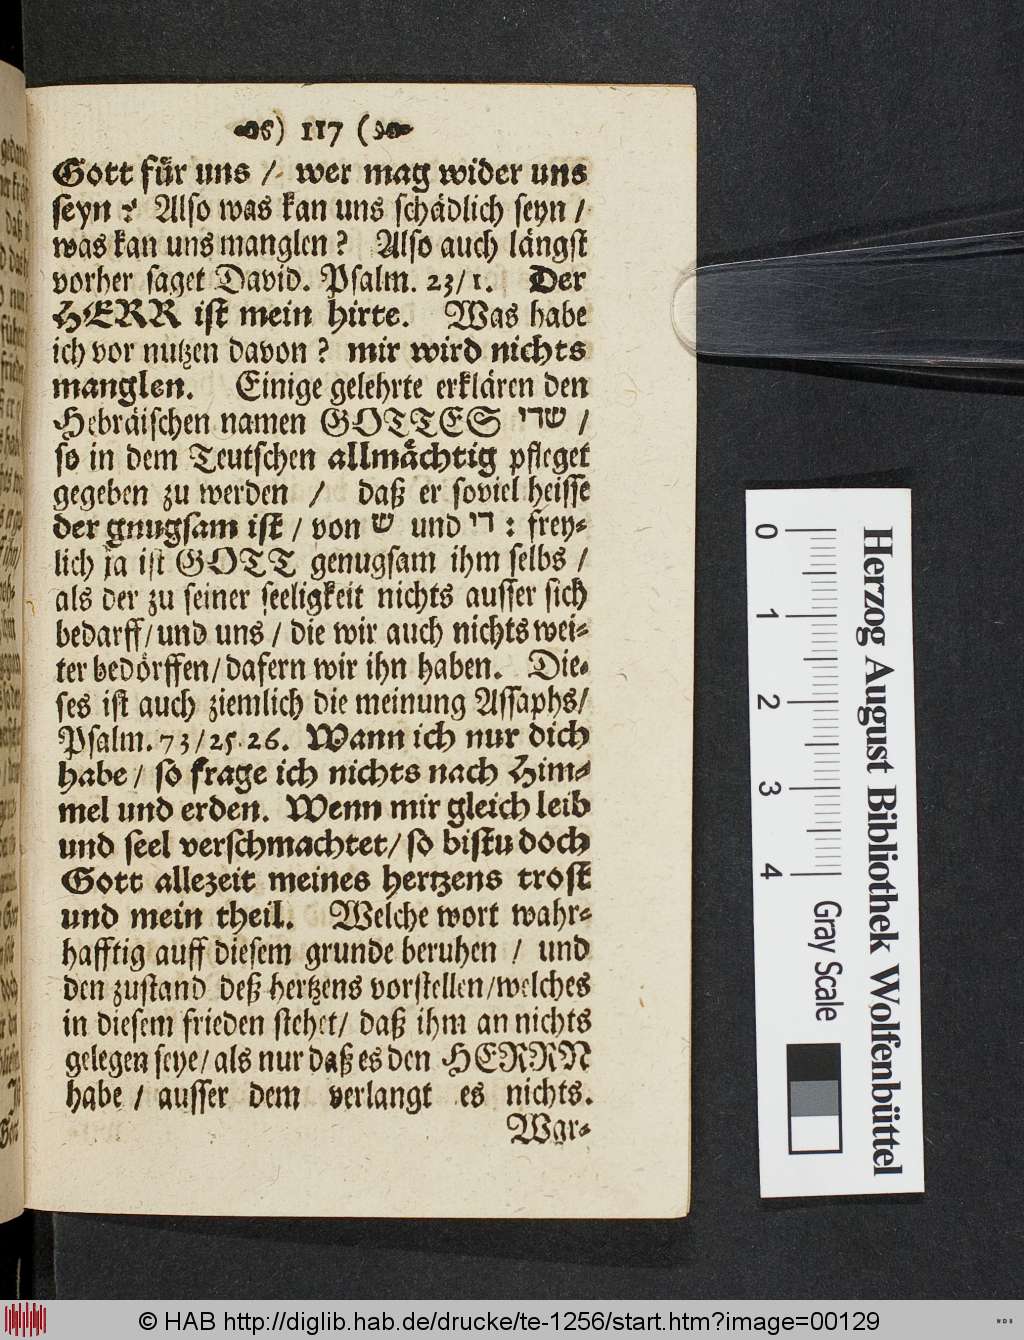 ) 117 (
Gott für uns / wer mag wider uns
seyn? Also was kan uns schädlich seyn /
was kan uns manglen? Also auch längst
vorher saget David. Psalm. 23/1. Der
HERR ist mein hirte. Was habe
ich vor nutzen davon? mir wird nichts
manglen. Einige gelehrte erklären den
Hebräischen namen GOTTES שדי /
so in dem Teutschen allmächtig pfleget
gegeben zu werden / daß er soviel heisse
der gnugsam ist / von ש und די: frey-
lich ja ist GOTT genugsam ihm selbs /
als der zu seiner seeligkeit nichts ausser sich
bedarff/ und uns / die wir auch nichts wei-
ter bedörffen/ dafern wir ihn haben. Die-
ses ist auch ziemlich die meinung Assaphs/
Psalm. 73/25.26. Wann ich nur dich
habe / so frage ich nichts nach Him-
mel und erden. Wenn mir gleich leib
und seel verschmachtet/ so bistu doch
Gott allezeit meines hertzens trost
und mein theil. Welche wort wahr-
hafftig auff diesem grunde beruhen / und
den zustand deß hertzens vorstellen/welches
in diesem frieden stehet/ daß ihm an nichts
gelegen seye/ als nur daß es den HERRN
habe / ausser dem verlangt es nichts.
War-
0 1 2 3 4
Gray Scale
Herzog August Bibliothek Wolfenbüttel
© HAB http://diglib.hab.de/drucke/te-1256/start.htm?image=00129